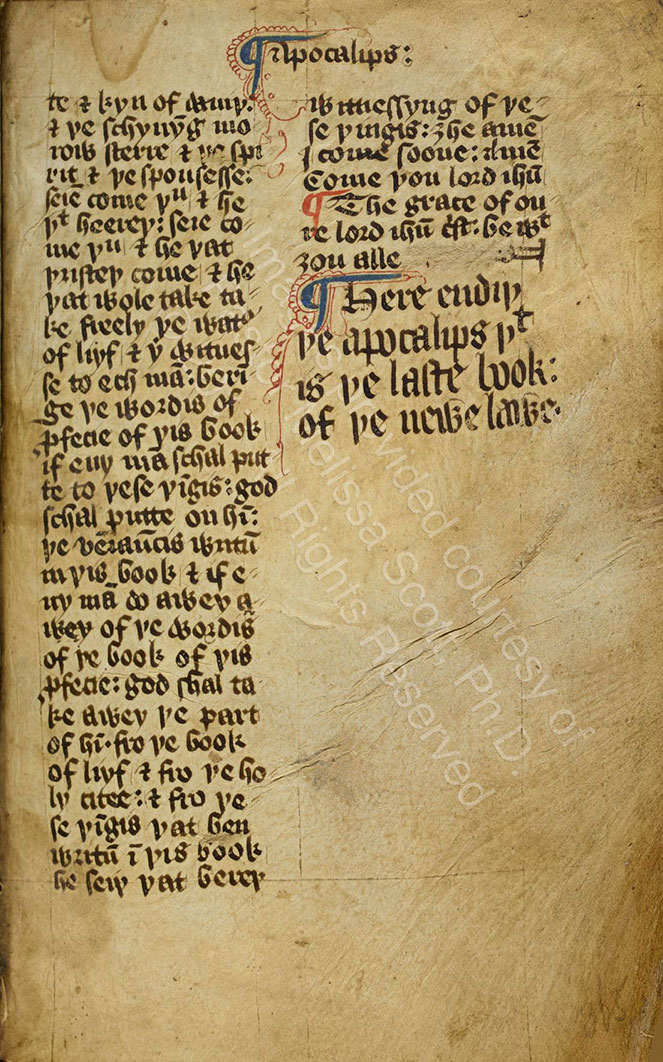 ¶ Apocalips:
te ⁊ kyn of dauiy:
⁊ ye schynȳg mo
row sterre ⁊ ye spi
rit ⁊ ye spousesse:
seie come yᵘ ⁊ he
yᵗ heerey: seie co-
me yᵘ ⁊ he yat
yristey come ⁊ he
yat wole take ta-
ke freely ye wat
of liyf ⁊ y witnes-
se to ech mā: heri-
ge ye wordis of
pfecie of yis book
if eny mā schal put
te to yese yīgis: god
schal putte on hī:
ye veniaūcis writū
in yis book ⁊ if e-
ny mā do awey a-
wey of ye wordis
of ye book of yis
pfecie: god shal ta
ke awey ye part
of hī. fro ye book
of liyf ⁊ fro ye ho
ly citee: ⁊ fro ye-
se yīgis yat ben
writū ī yis book
he sey yat berey
witnessyng of ye-
se yingis: ȝhe amē
I come soone: amē
Come you lord ihū
¶ The grace of ou
re lord ihū cst: be wᵗ
ȝou alle
¶ Here endiy
ye apocalips yᵗ
is ye laste book:
of ye newe lawe.
Image provided courtesy of
Melissa Scott, Ph.D
Rights Reserved